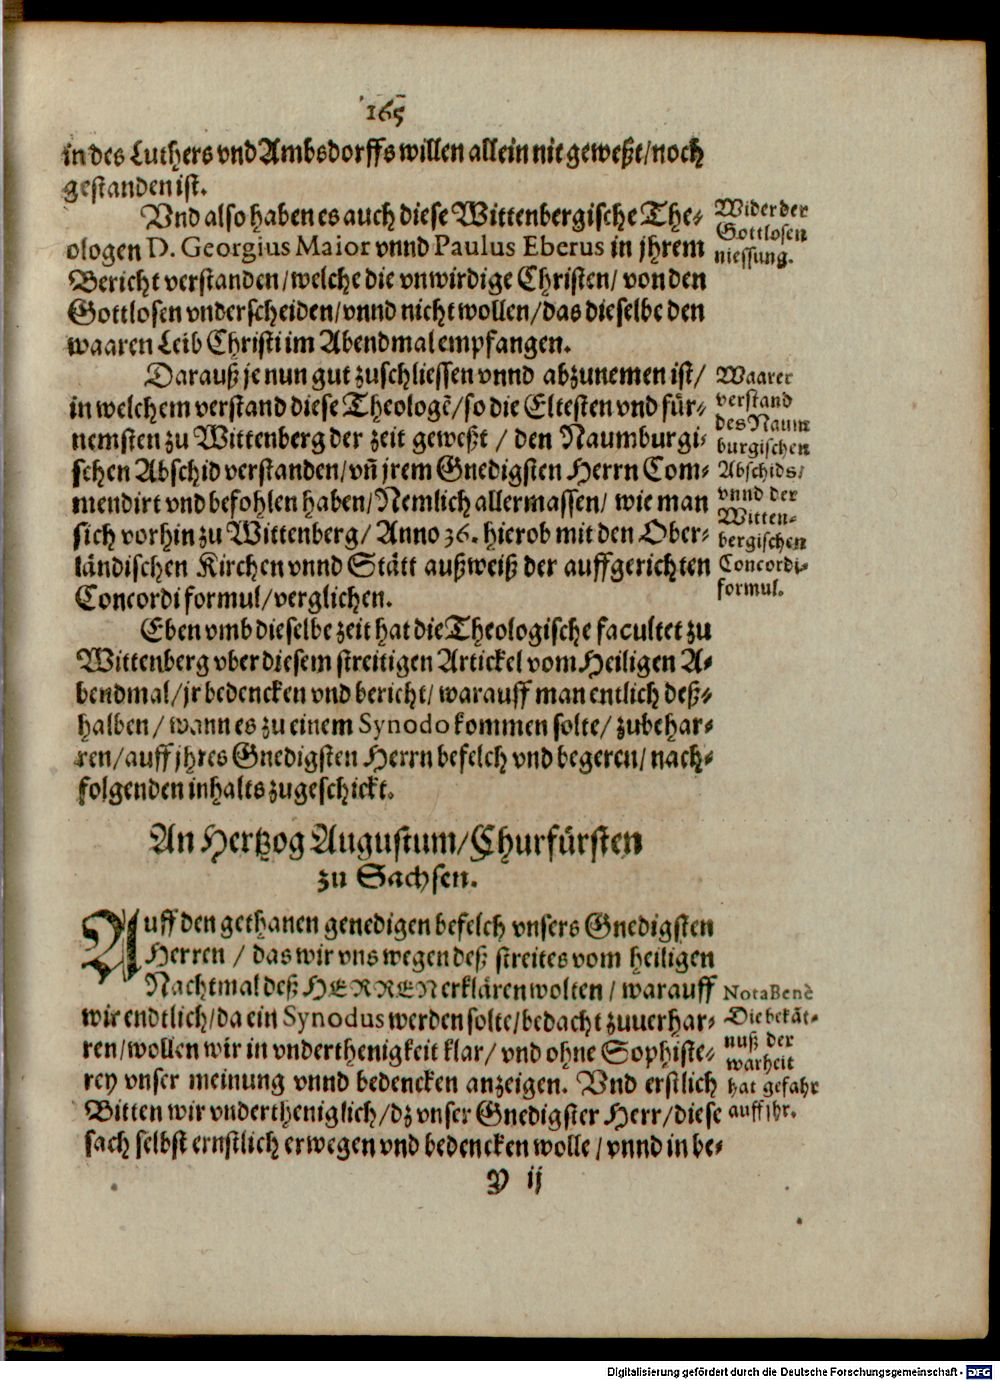 165
in des Luthers vnd Ambsdorffs willen allein nit geweßt/noch
gestanden ist.
Vnd also haben es auch diese Wittenbergische The-
ologen D. Georgius Maior vnnd Paulus Eberus in jhrem
Bericht verstanden/welche die vnwirdige Christen/ von den
Gottlosen vnderscheiden/vnnd nicht wollen/das dieselbe den
waaren Leib Christi im Abendmal empfangen.
Wider der
Gottlosen
niessung.
Darauß je nun gut zuschliessen vnnd abzunemen ist/
in welchem verstand diese Theologẽ/so die Eltesten vnd für-
nemsten zu Wittenberg der zeit geweßt / den Naumburgi-
schen Abschid verstanden/vñ jrem Gnedigsten Herrn Com-
mendirt vnd befohlen haben/Nemlich allermassen/ wie man
sich vorhin zu Wittenberg/ Anno 36. hierob mit den Ober-
ländischen Kirchen vnnd Stätt außweiß der auffgerichten
Concordi formul/verglichen.
Waarer
verstand
des Naum
burgischen
Abschids/
vnnd der
Witten-
bergischen
Concordi-
formul.
Eben vmb dieselbe zeit hat die Theologische facultet zu
Wittenberg vber diesem streitigen Artickel vom Heiligen A-
bendmal/jr bedencken vnd bericht/ warauff man entlich deß-
halben/ wann es zu einem Synodo kommen solte/ zubehar-
ren/auff jhres Gnedigsten Herrn befelch vnd begeren/ nach-
folgenden inhalts zugeschickt.
An Hertzog Augustum/Churfürsten
zu Sachsen.
Auff den gethanen genedigen befelch vnsers Gnedigsten
Herren / das wir vns wegen deß streites vom heiligen
Nachtmal deß HERREN erklären wolten / warauff
wir endtlich/da ein Synodus werden solte/bedacht zuuerhar-
ren/wollen wir in vnderthenigkeit klar/ vnd ohne Sophiste-
rey vnser meinung vnnd bedencken anzeigen. Vnd erstlich
Bitten wir vndertheniglich/dz vnser Gnedigster Herr/diese
sach selbst ernstlich erwegen vnd bedencken wolle / vnnd in be-
Nota Benè
Die bekät-
nuß der
warheit
hat gefahr
auff jhr.
Y ij
Digitalisierung gefördert durch die Deutsche Forschungsgemeinschaft - DFG